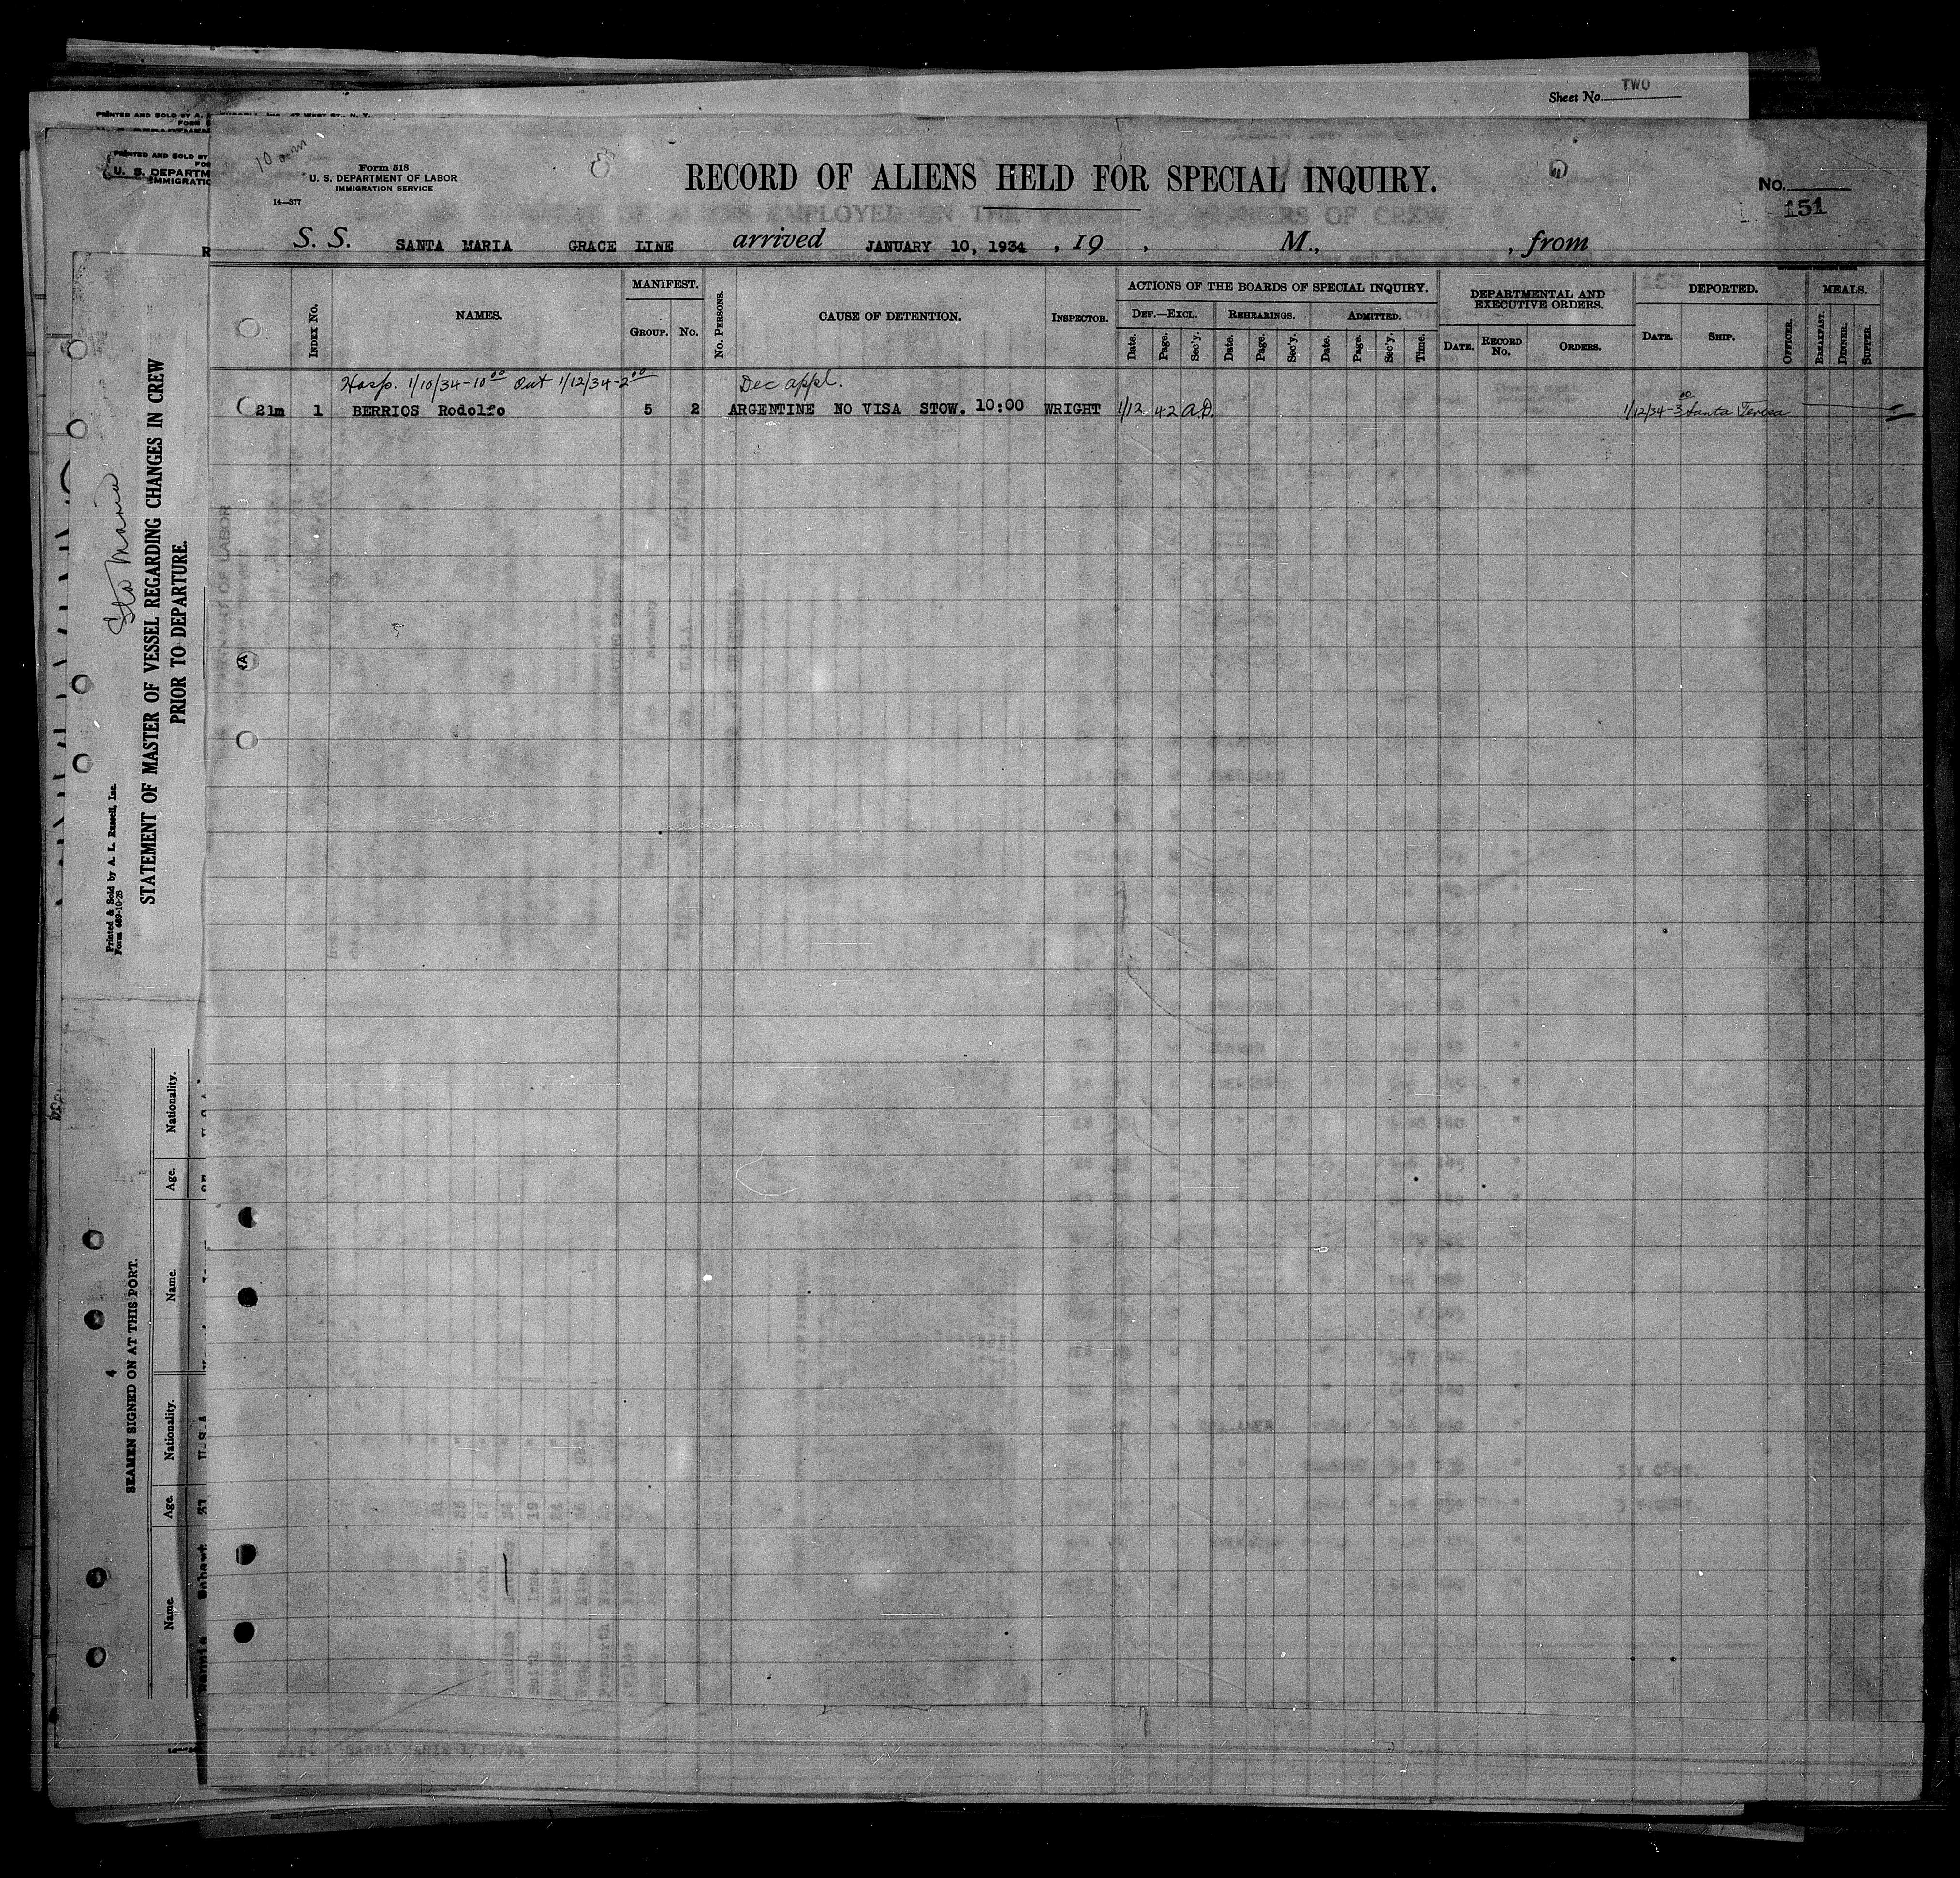 Sheet No. TWO
PRINTED AND SOLD BY A.
PRINTED AND SOLD BY
U. S. DEPARTM
IMMIGRATIO
10 am
Form 518
U. S. DEPARTMENT OF LABOR
IMMIGRATION SERVICE
14—377
RECORD OF ALIENS HELD FOR SPECIAL INQUIRY.
No.
151
S. S. SANTA MARIA GRACE LINE arrived JANUARY 10, 1934, 19 , M., , from
INDEX No.
NAMES.
MANIFEST.
GROUP. No.
No. PERSONS.
CAUSE OF DETENTION.
INSPECTOR.
ACTIONS OF THE BOARDS OF SPECIAL INQUIRY.
DEF.—EXCL. REHEARINGS. ADMITTED.
Date. Page. Sec'y. Date. Page. Sec'y. Date. Page. Sec'y. Time.
DEPARTMENTAL AND
EXECUTIVE ORDERS.
DATE. RECORD No. ORDERS.
DEPORTED.
DATE. SHIP. OFFICER.
MEALS.
BREAKFAST. DINNER. SUPPER.
Hosp. 1/10/34-10 00 Out 1/12/34-2 00 Dec appl.
21m 1 BERRIOS Rodolfo 5 2 ARGENTINE NO VISA STOW. 10:00 WRIGHT 1/12 42 A.D. 1/12/34-3 00 Santa Teresa
Sta Maria
STATEMENT OF MASTER OF VESSEL REGARDING CHANGES IN CREW
PRIOR TO DEPARTURE.
Printed & Sold by A. L. Russell, Inc.
Form 689-10-28
4
SEAMEN SIGNED ON AT THIS PORT.
Name. Age. Nationality. Name. Age. Nationality.
Robert 31 U.S.A